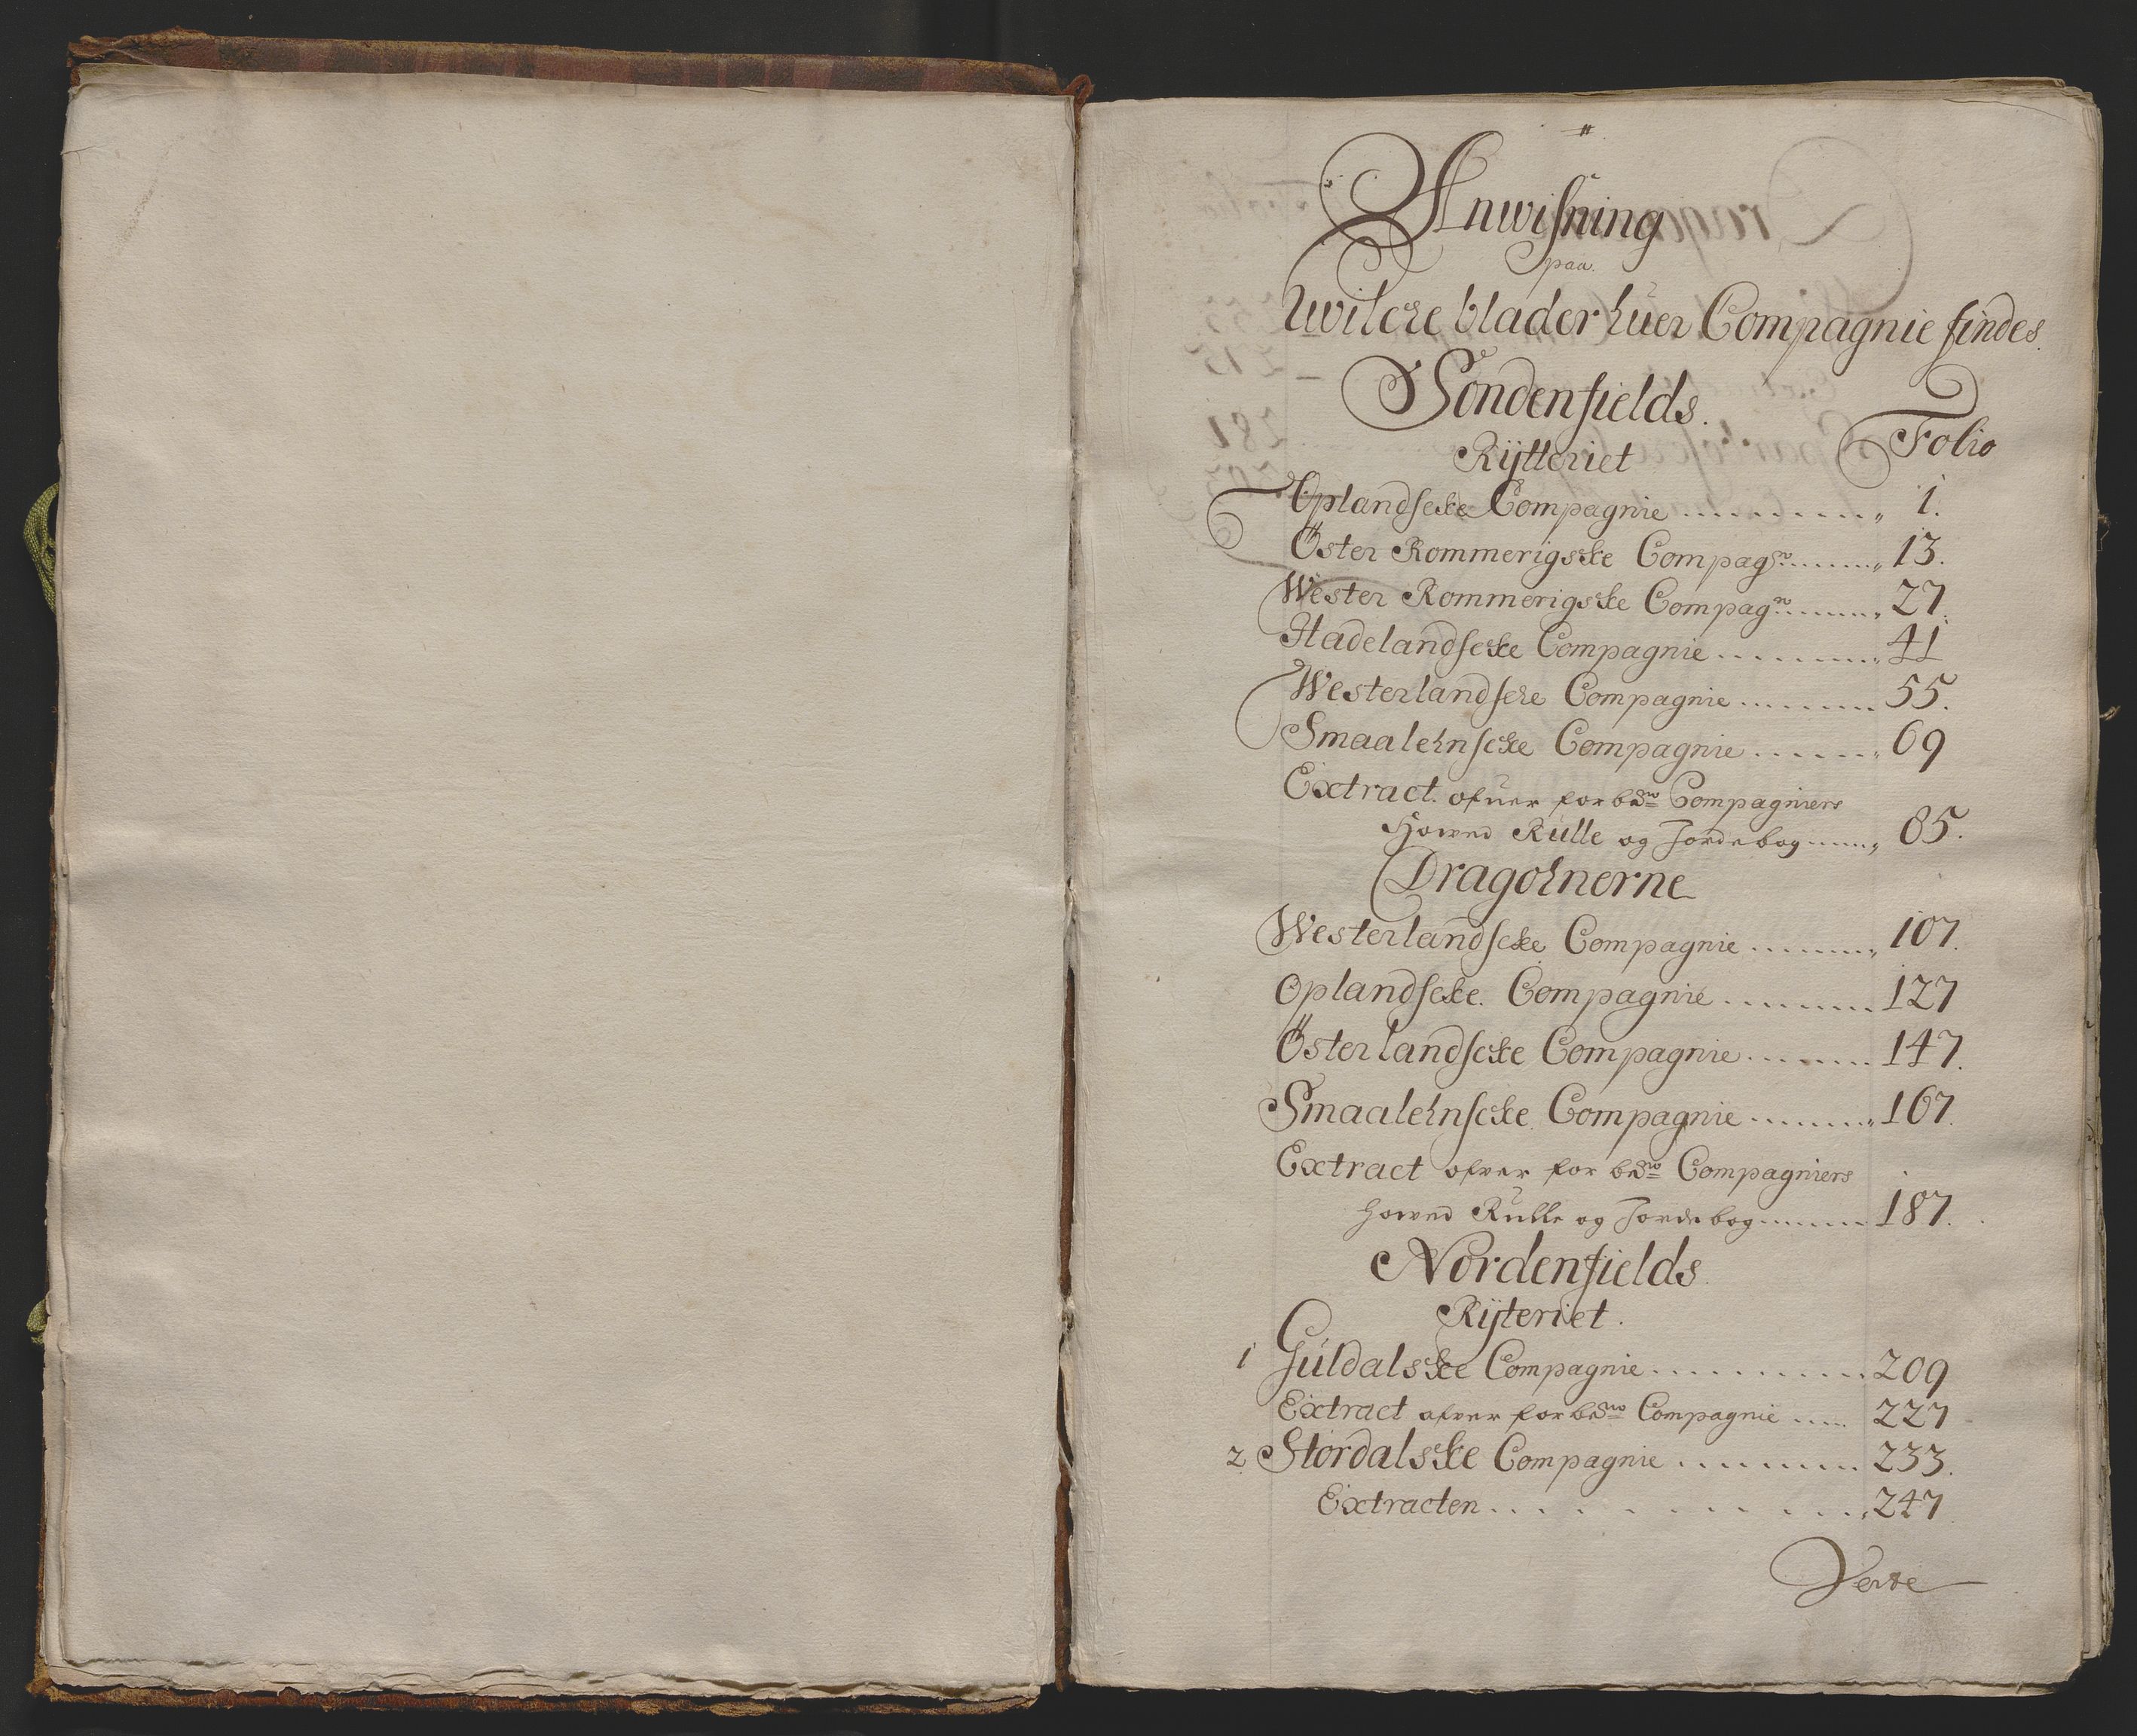 Anwisning
paa
Hwilcke blader huer Compagnie findes.
Söndenfields.
Folio
Rytteriet
Oplandscke Compagnie .......... 1.
Öster Rommerigske Compagn. ....... 13.
Wester Rommerigske Compagn. ...... 27.
Hadelandscke Compagnie ......... 41
Westerlandscke Compagnie ........ 55.
Smaalehnscke Compagnie ....... 69
Extract ofuer forbemte Compagniers
Hoved Rulle og Jordebog ...... 85.
Dragohnerne
Westerlandscke Compagnie ........ 107.
Oplandscke Compagnie ......... 127
Österlandscke Compagnie ........ 147.
Smaalehnscke Compagnie ........ 167.
Extract ofver forbemte Compagniers
hoved Rulle og Jordebog ....... 187.
Nordenfields
Rÿteriet.
1 Guldalske Compagnie ........... 209
Extract ofver forbemte Compagnie ..... 227
2 Stördalske Compagnie ......... 233.
Extracten ........ 247
Verte